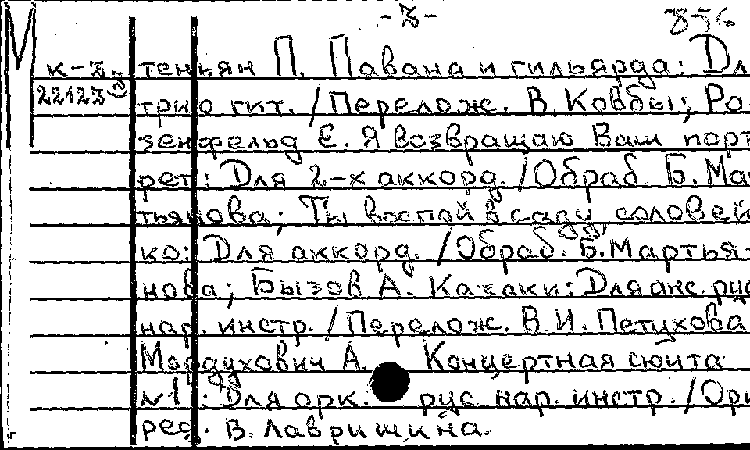 -3- 856
к-3 теньян П. Павана и гильярда: Дл
22123 трио гит. /Перелож. В. Ковбы; Ро
зенфельд Е. Я возвращаю Вам порт
рет: Для 2-х аккорд. /Обраб. Б. Ма
тьянова; Ты воспой в саду, соловей
ко: Для аккорд. /Обраб. Б. Мартья-
нова; Бызов А. Казаки: Для анс. рус
нар. инстр. /Перелож. В. И. Петухова
Мордухович А. Концертная сюита
№1: Для орк. рус. нар. инстр. /Ори
ред. В. Лавришина.